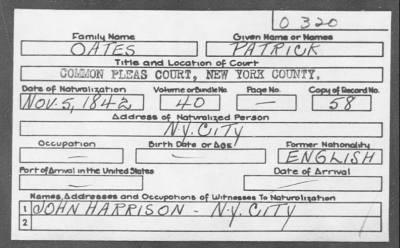 O 320
Family Name Given Name or Names
OATES PATRICK
Title and Location of Court
COMMON PLEAS COURT, NEW YORK COUNTY.
Date of Naturalization Volume or Bundle No. Page No. Copy of Record No.
NOV. 5, 1842 40 — 58
Address of Naturalized Person
N.Y. CITY
Occupation Birth Date or Age Former Nationality
— — ENGLISH
Port of Arrival in the United States Date of Arrival
— —
Names, Addresses and Occupations of Witnesses To Naturalization
1 JOHN HARRISON - N.Y. CITY
2